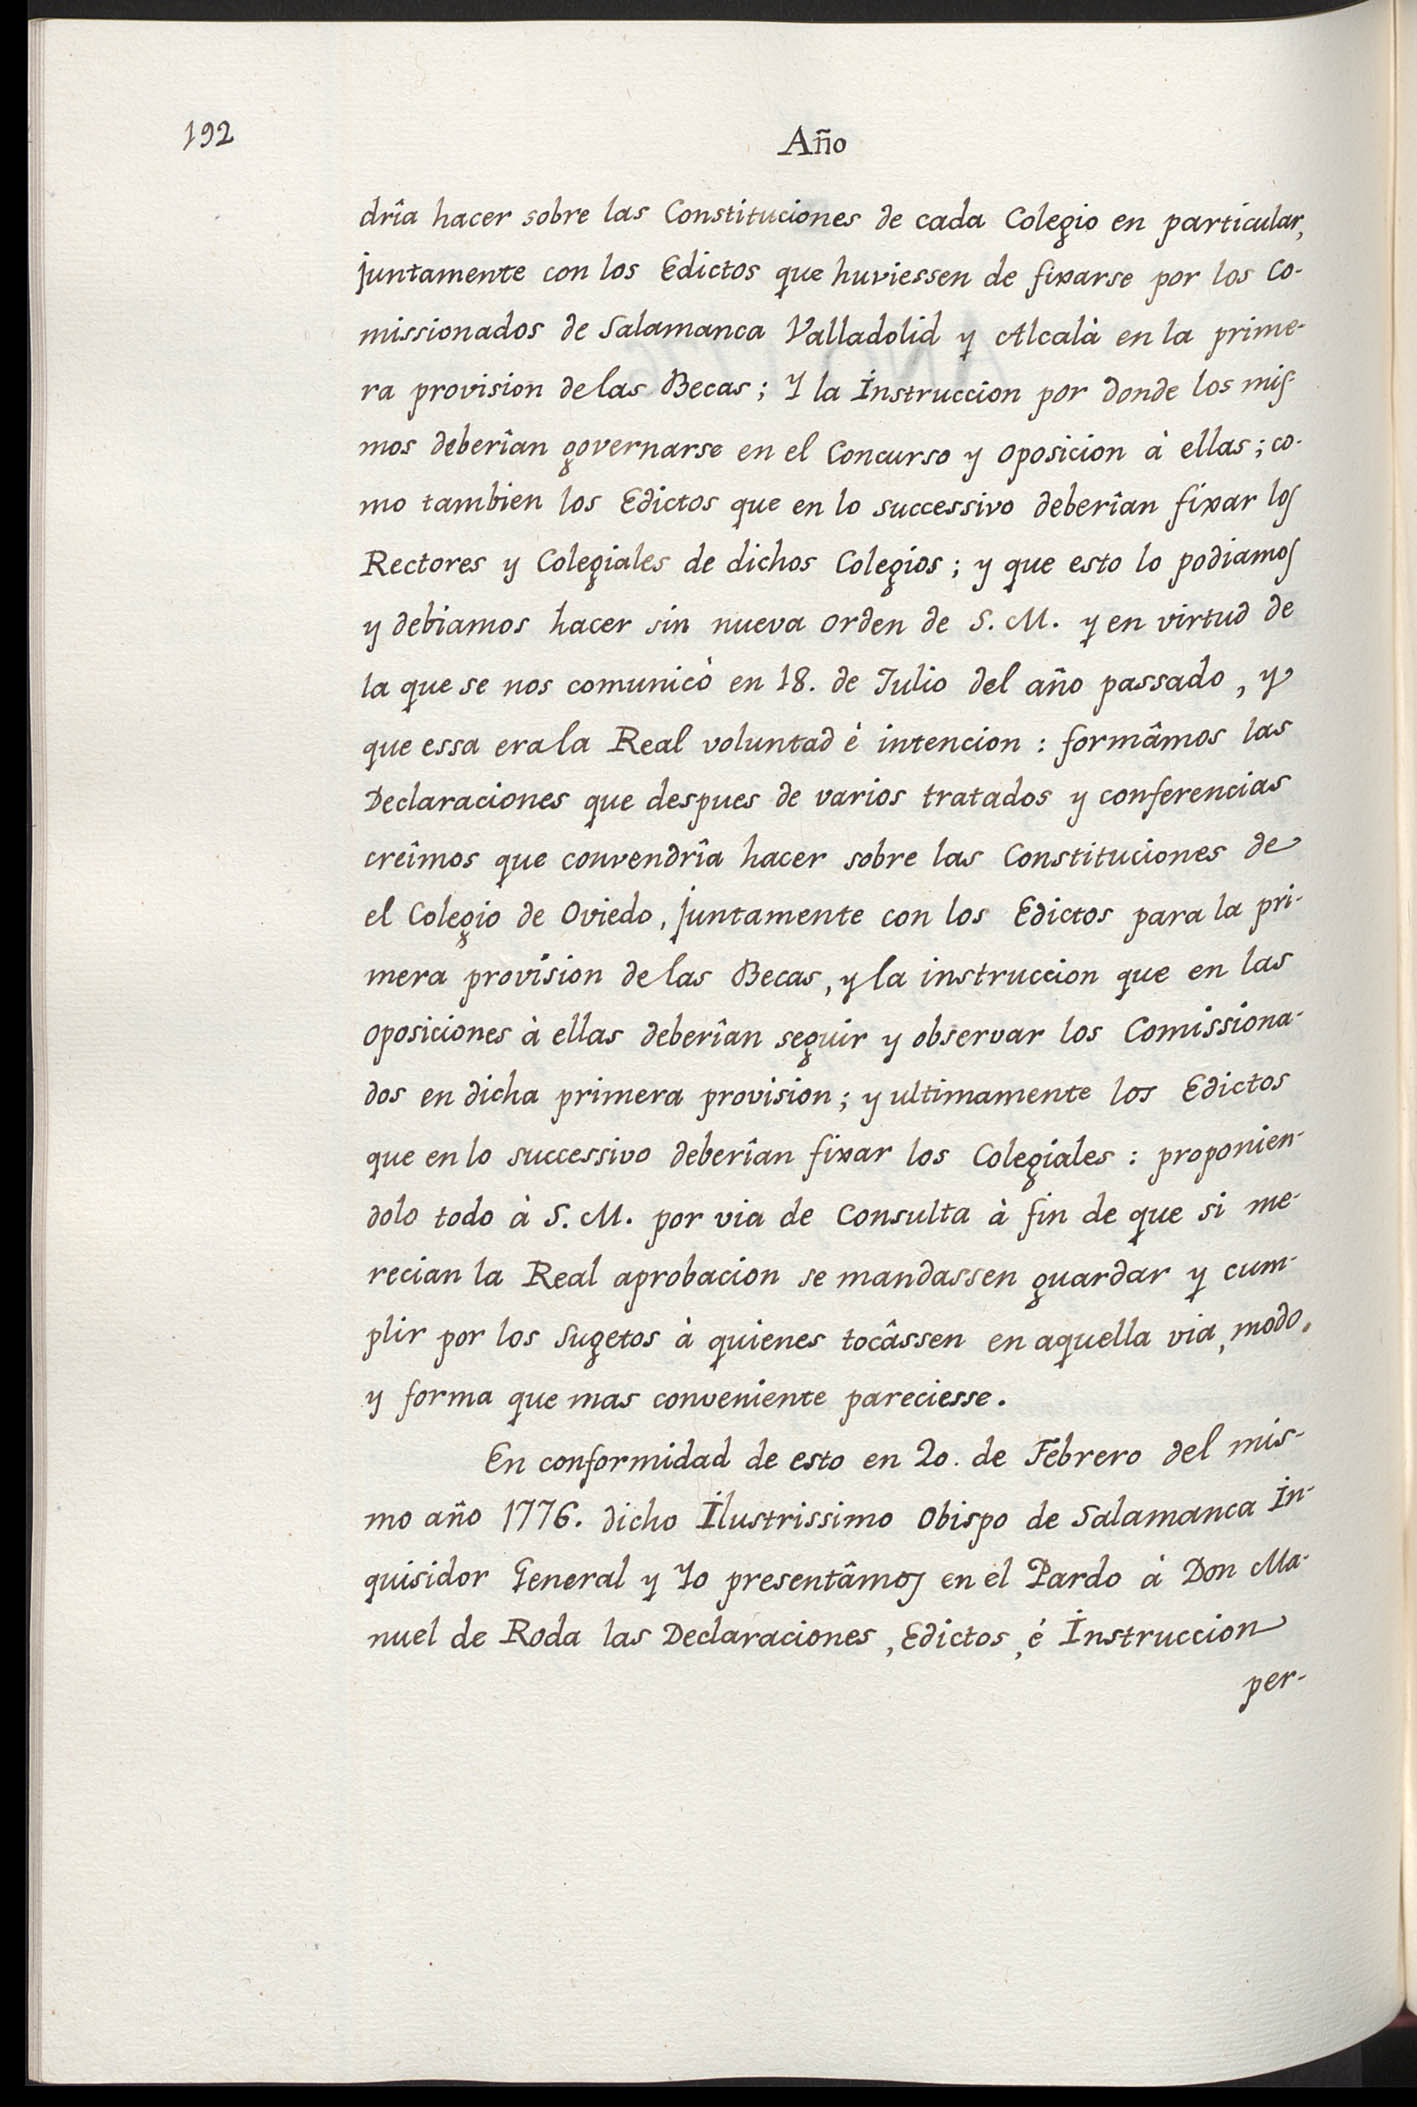 192
Año
drîa hacer sobre las Constituciones de cada Colegio en particular,
juntamente con los Edictos que huviessen de fixarse por los Co-
missionados de Salamanca Valladolid y Alcalà en la prime-
ra provision de las Becas; Y la Instruccion por donde los mis-
mos deberîan governarse en el Concurso y Oposicion à ellas; co-
mo tambien los Edictos que en lo successivo deberîan fixar los
Rectores y Colegiales de dichos Colegios; y que esto lo podiamos
y debiamos hacer sin nueva Orden de S. M. y en virtud de
la que se nos comunicò en 18. de Julio del año passado, y
que essa era la Real voluntad è intencion: formâmos las
Declaraciones que despues de varios tratados y conferencias
creîmos que convendrîa hacer sobre las Constituciones de
el Colegio de Oviedo, juntamente con los Edictos para la pri-
mera provision de las Becas, y la instruccion que en las
Oposiciones à ellas deberîan seguir y observar los Comissiona-
dos en dicha primera provision; y ultimamente los Edictos
que en lo successivo deberîan fixar los Colegiales: proponien-
dolo todo à S. M. por via de Consulta à fin de que si me-
recian la Real aprobacion se mandassen guardar y cum-
plir por los Sugetos à quienes tocâssen en aquella via, modo,
y forma que mas conveniente pareciesse.
En conformidad de esto en 20. de Febrero del mis-
mo año 1776. dicho Ilustrissimo Obispo de Salamanca In-
quisidor General y Yo presentâmos en el Pardo à Don Ma-
nuel de Roda las Declaraciones, Edictos, è Instruccion
per-